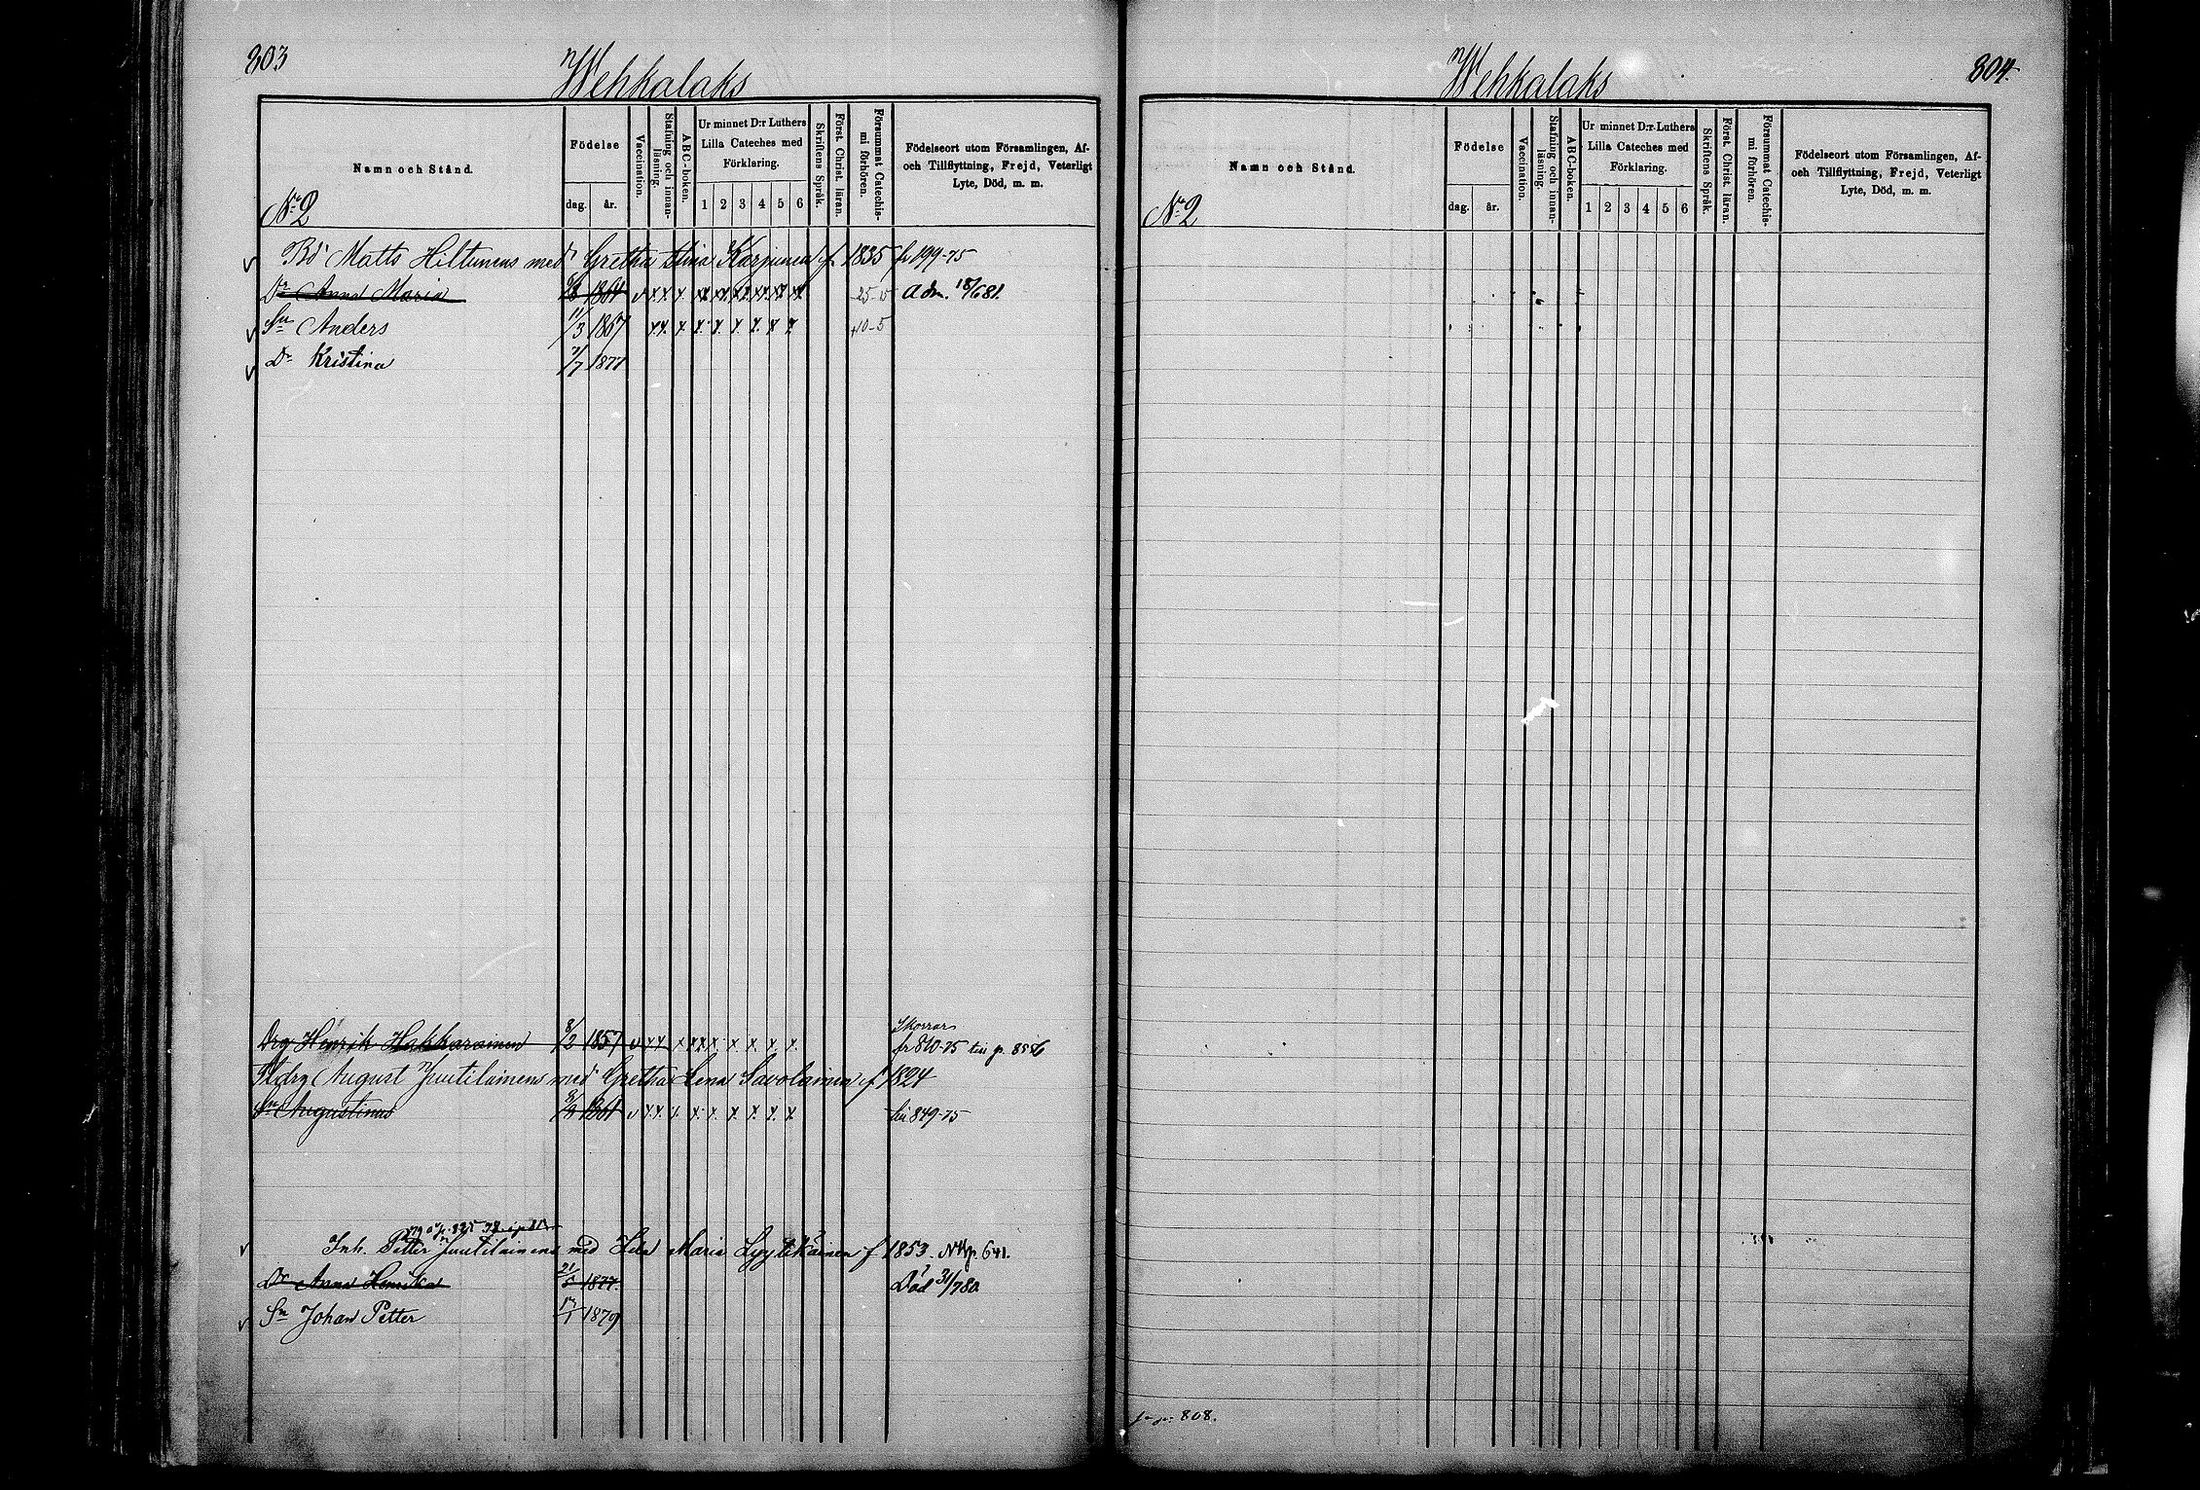 803
Wehkalaks
Namn och Stånd.
Födelse
dag.
år.
Vaccination.
Stafning och innanläsning.
ABC-boken.
Ur minnet D:r Luthers
Lilla Cateches med
Förklaring.
1 2 3 4 5 6
Skriftens Språk.
Först. Christ. läran.
Försummat Catechismi förhören.
Födelseort utom Församlingen, Af-
och Tillflyttning, Frejd, Veterligt
Lyte, Död, m. m.
No 2
Matts Hiltunens med Gretha Stina Karjunen f. 1835 fr 199-75
Dr Anna Maria 1861 v x x x x x x x x x Adm. 18/6 81.
Sn Anders 11/3 1867 x x x x x x x x x 40-5
Dr Kristina 7/7 1877
Drg Henrik Hakkarainen 8/2 1857 v x x x x x x x x x fr 810-75
August Juutilainens med Gretha Lena Savolainen f 1824
Sn Augustinus 1861 v x x x x x x x x x 849-75
Inh. Petter Juutilainens med Maria Lyytikäinen f 1853. p. 641.
Dr Anna Henrika 21/5 1877. Död 31/7 80
Sn Johan Petter 17/1 1879
804.
Wehkalaks
Namn och Stånd.
Födelse
dag.
år.
Vaccination.
Stafning och innanläsning.
ABC-boken.
Ur minnet D:r Luthers
Lilla Cateches med
Förklaring.
1 2 3 4 5 6
Skriftens Språk.
Först. Christ. läran.
Försummat Catechismi förhören.
Födelseort utom Församlingen, Af-
och Tillflyttning, Frejd, Veterligt
Lyte, Död, m. m.
No 2
808.